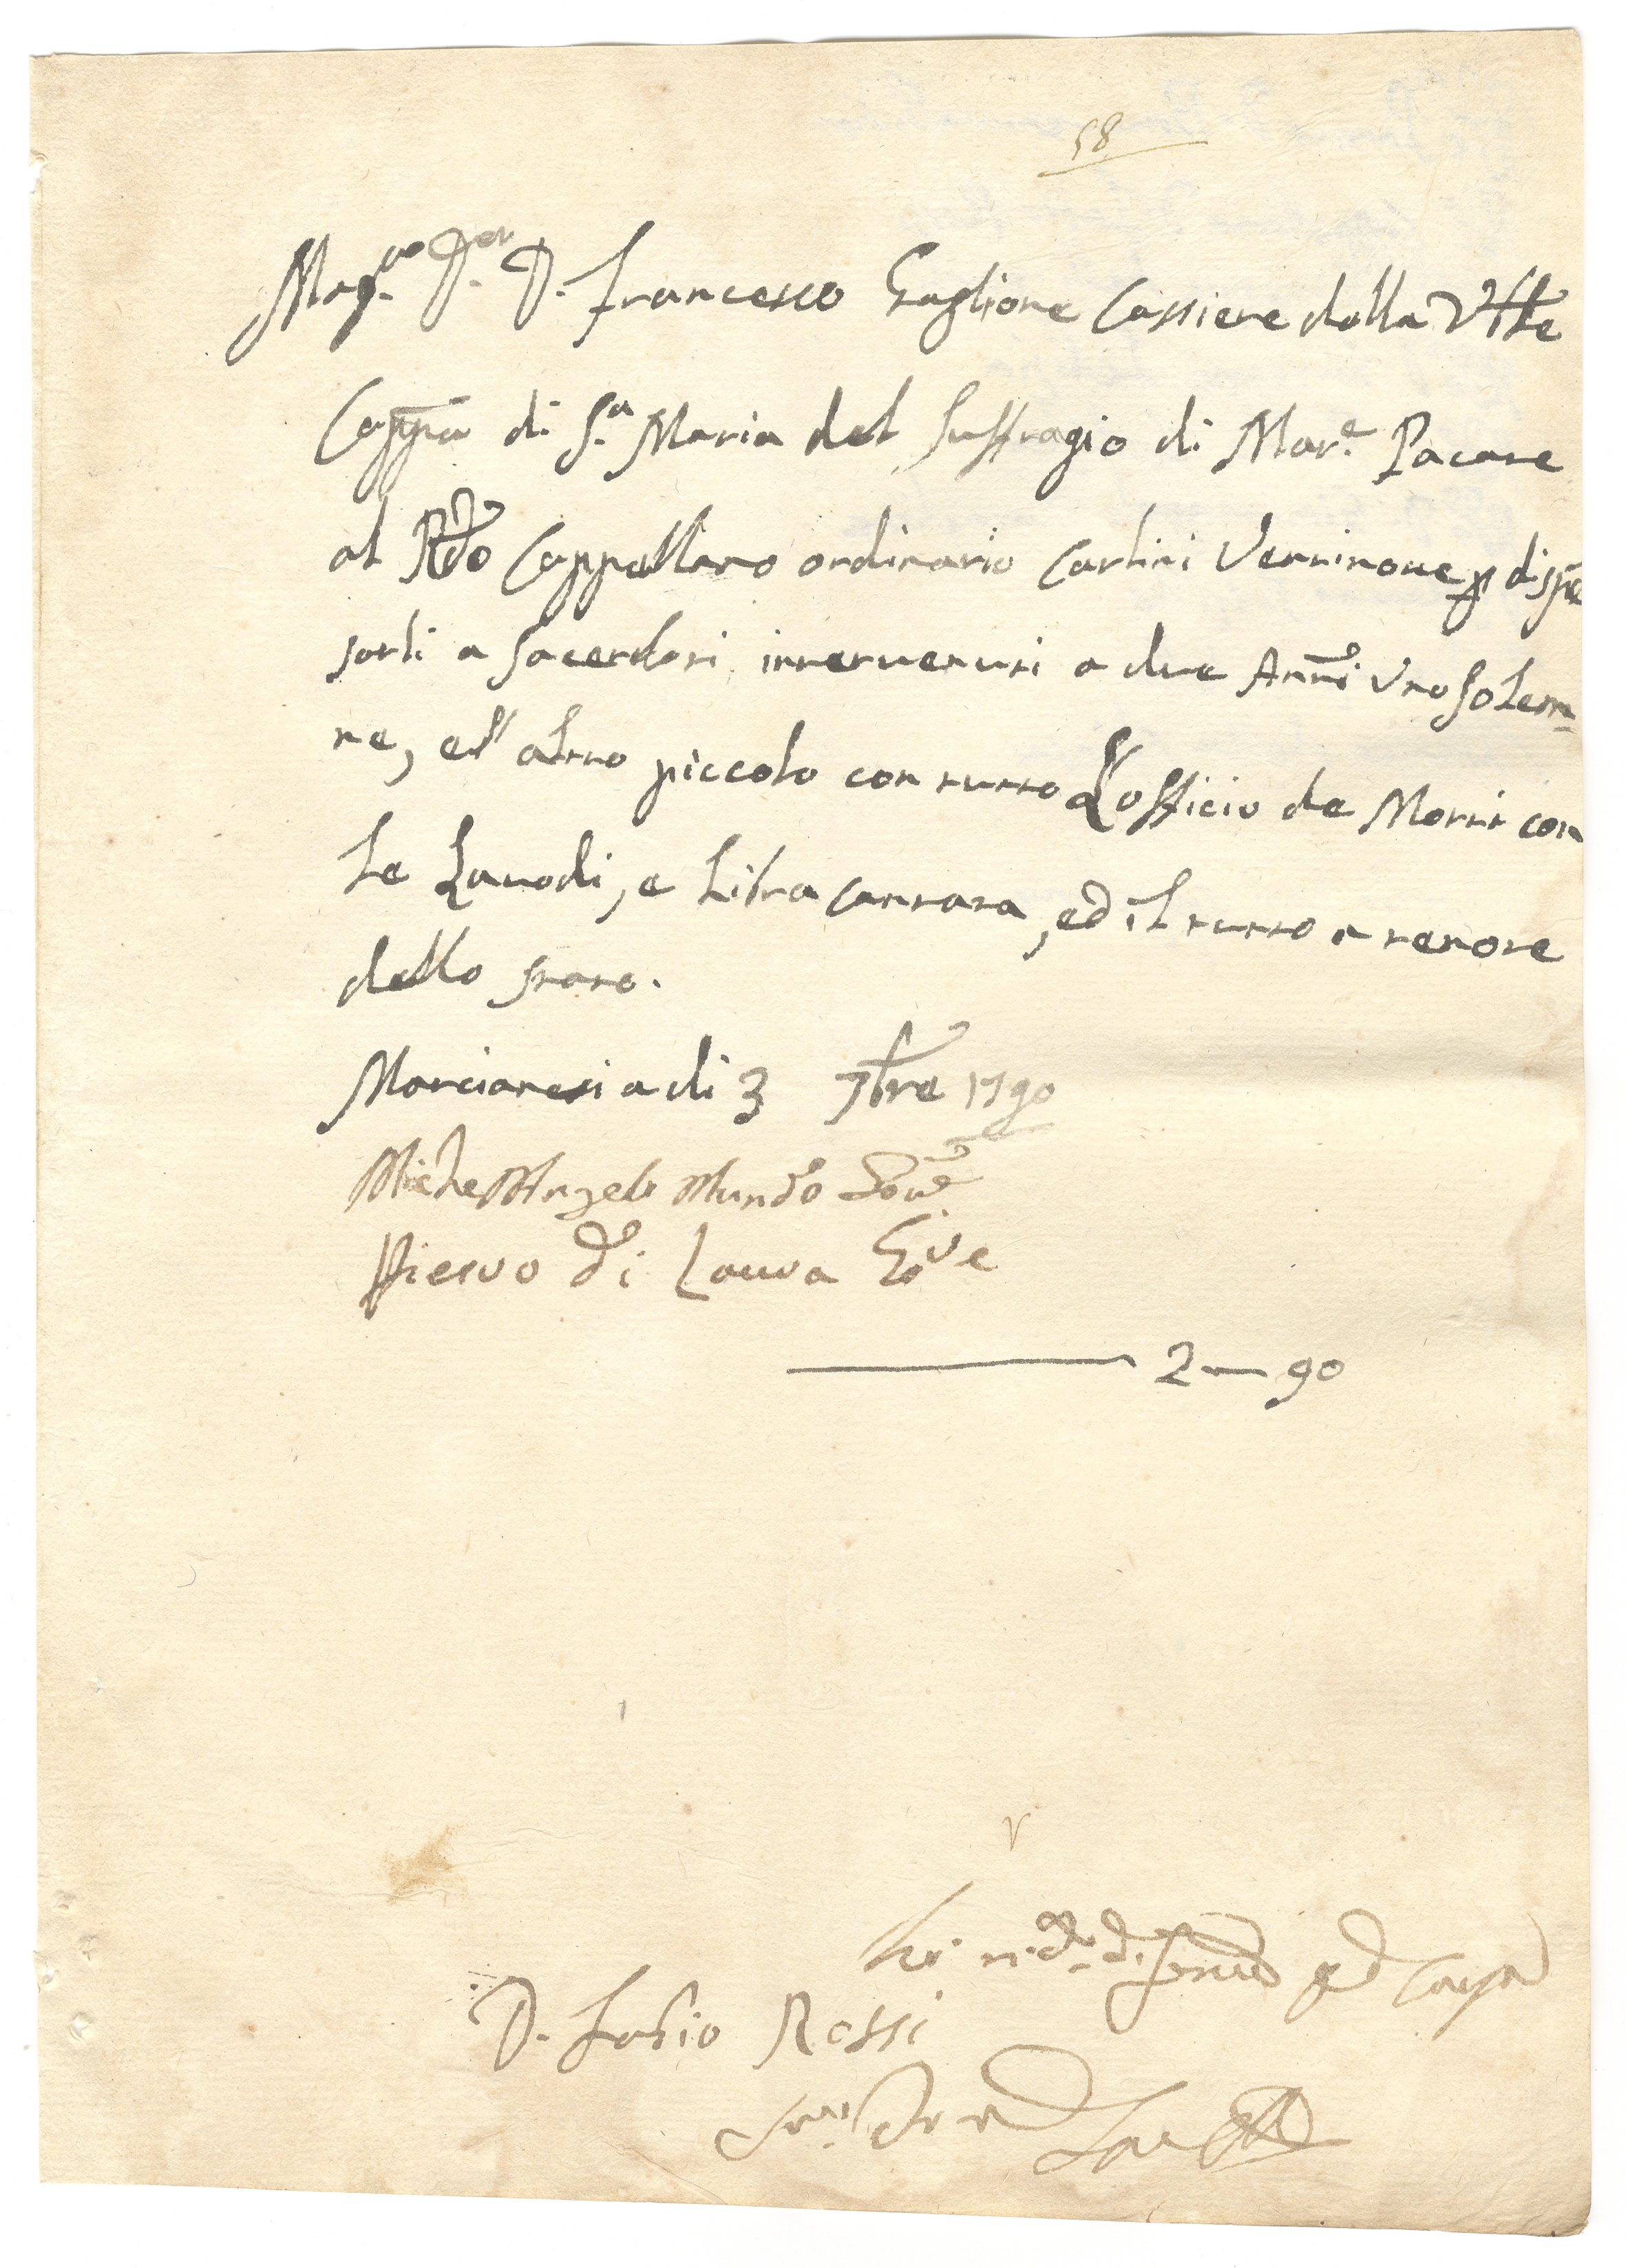 58
Mag.co D.r D. Francesco Gaglione Cassiere della Vble
Cappa di S.a Maria del Suffragio di Mar.e Pacate
al Rdo Cappellano ordinario Carlini Ventinove p dispe
sarli a Sacerdoti intervenuti a due Anni Uno Solem=
ne, e l'altro piccolo con tutto L'officio de Morti con
le Lauodi, e Libra Cantata, ed il tutto a tenore
dello stato.
Marcianesi a di 3 7bre 1790
Michel'Angelo Mundo Goue
Pietro di Laura Gove
2 — 90
D. Fabio Rossi